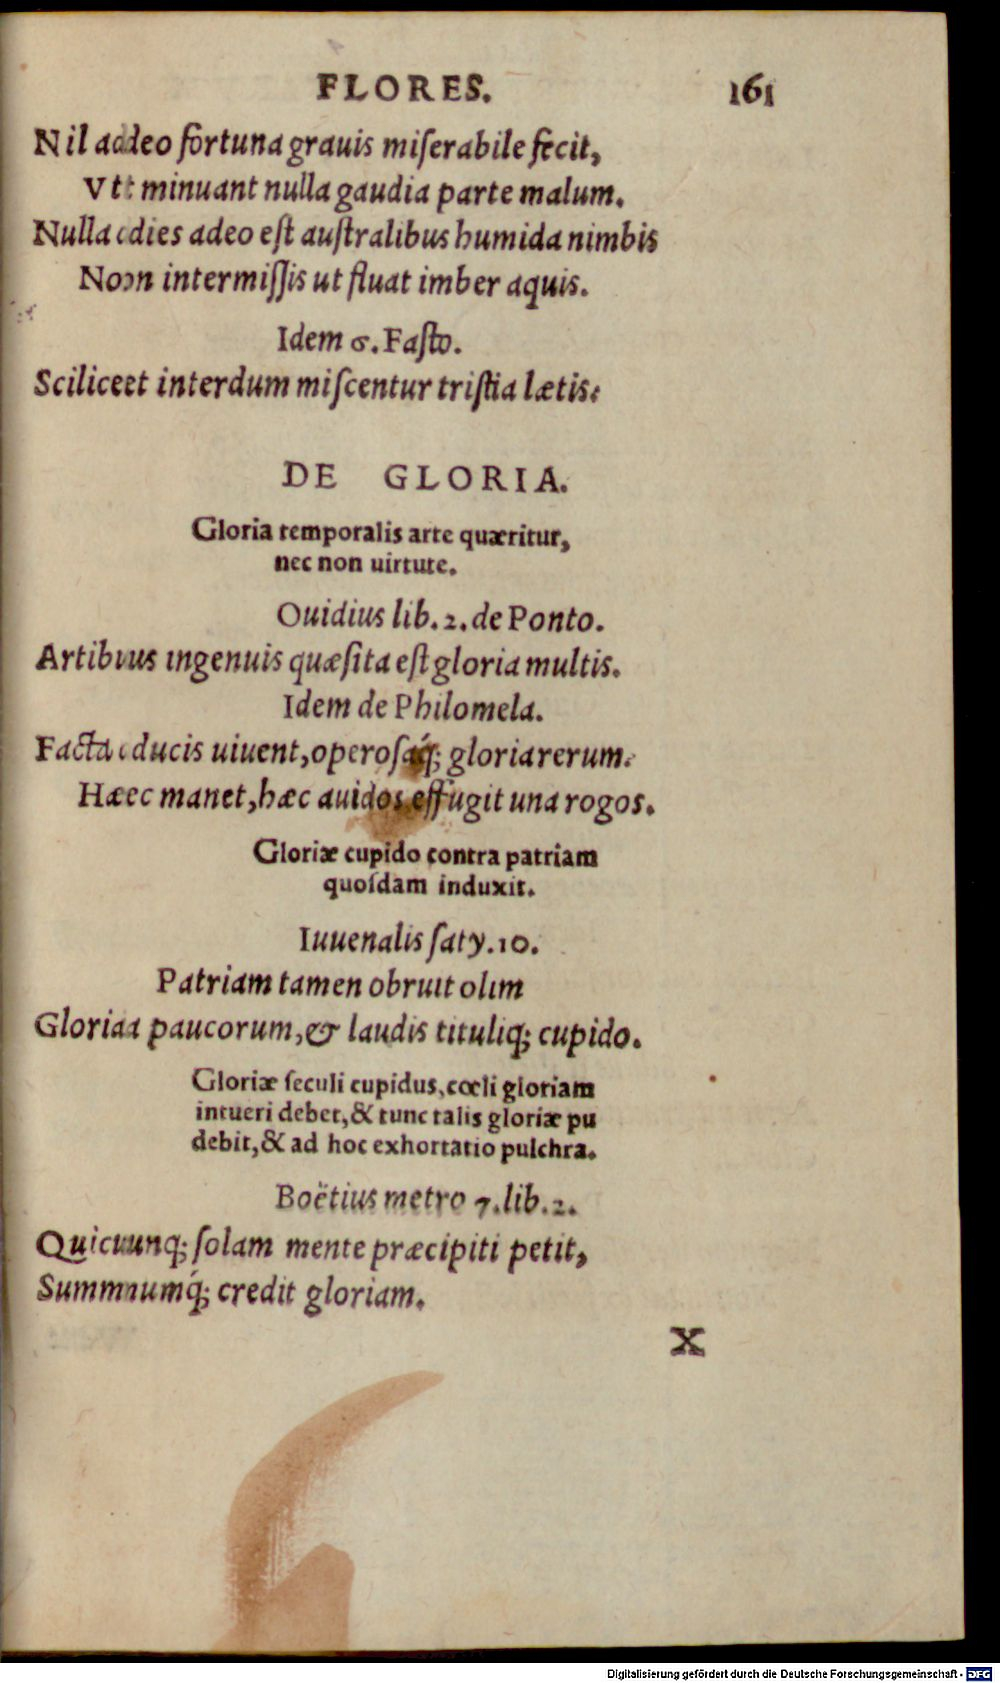 FLORES. 161
Nil adeo fortuna grauis miſerabile fecit,
Vt minuant nulla gaudia parte malum.
Nulla dies adeo eſt auſtralibus humida nimbis
Non intermiſſis ut fluat imber aquis.
Idem 6. Faſto.
Scilicet interdum miſcentur triſtia lætis.
DE GLORIA.
Gloria temporalis arte quæritur,
nec non uirtute.
Ouidius lib. 2. de Ponto.
Artibus ingenuis quæſita eſt gloria multis.
Idem de Philomela.
Facta ducis uiuent, operoſaq́; gloria rerum.
Hæc manet, hæc auidos effugit una rogos.
Gloriæ cupido contra patriam
quoſdam induxit.
Iuuenalis ſaty. 10.
Patriam tamen obruit olim
Gloria paucorum, & laudis tituliq; cupido.
Gloriæ ſeculi cupidus, cœli gloriam
intueri debet, & tunc talis gloriæ pu
debit, & ad hoc exhortatio pulchra.
Boëtius metro 7. lib. 2.
Quicunq; ſolam mente præcipiti petit,
Summumq́; credit gloriam.
X
Digitalisierung gefördert durch die Deutsche Forschungsgemeinschaft - DFG